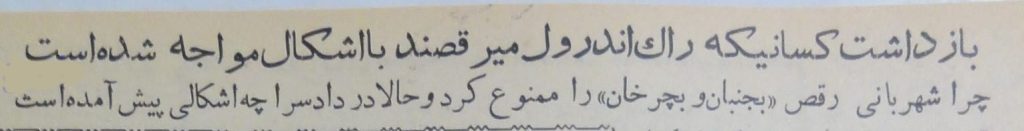 بازداشت کسانیکه راك‌اندرول میرقصند با اشکال مواجه شده‌است
چرا شهربانی رقص «بجنبان و بچرخان» را ممنوع کرد و حالا در دادسرا چه اشکالی پیش‌آمده‌است